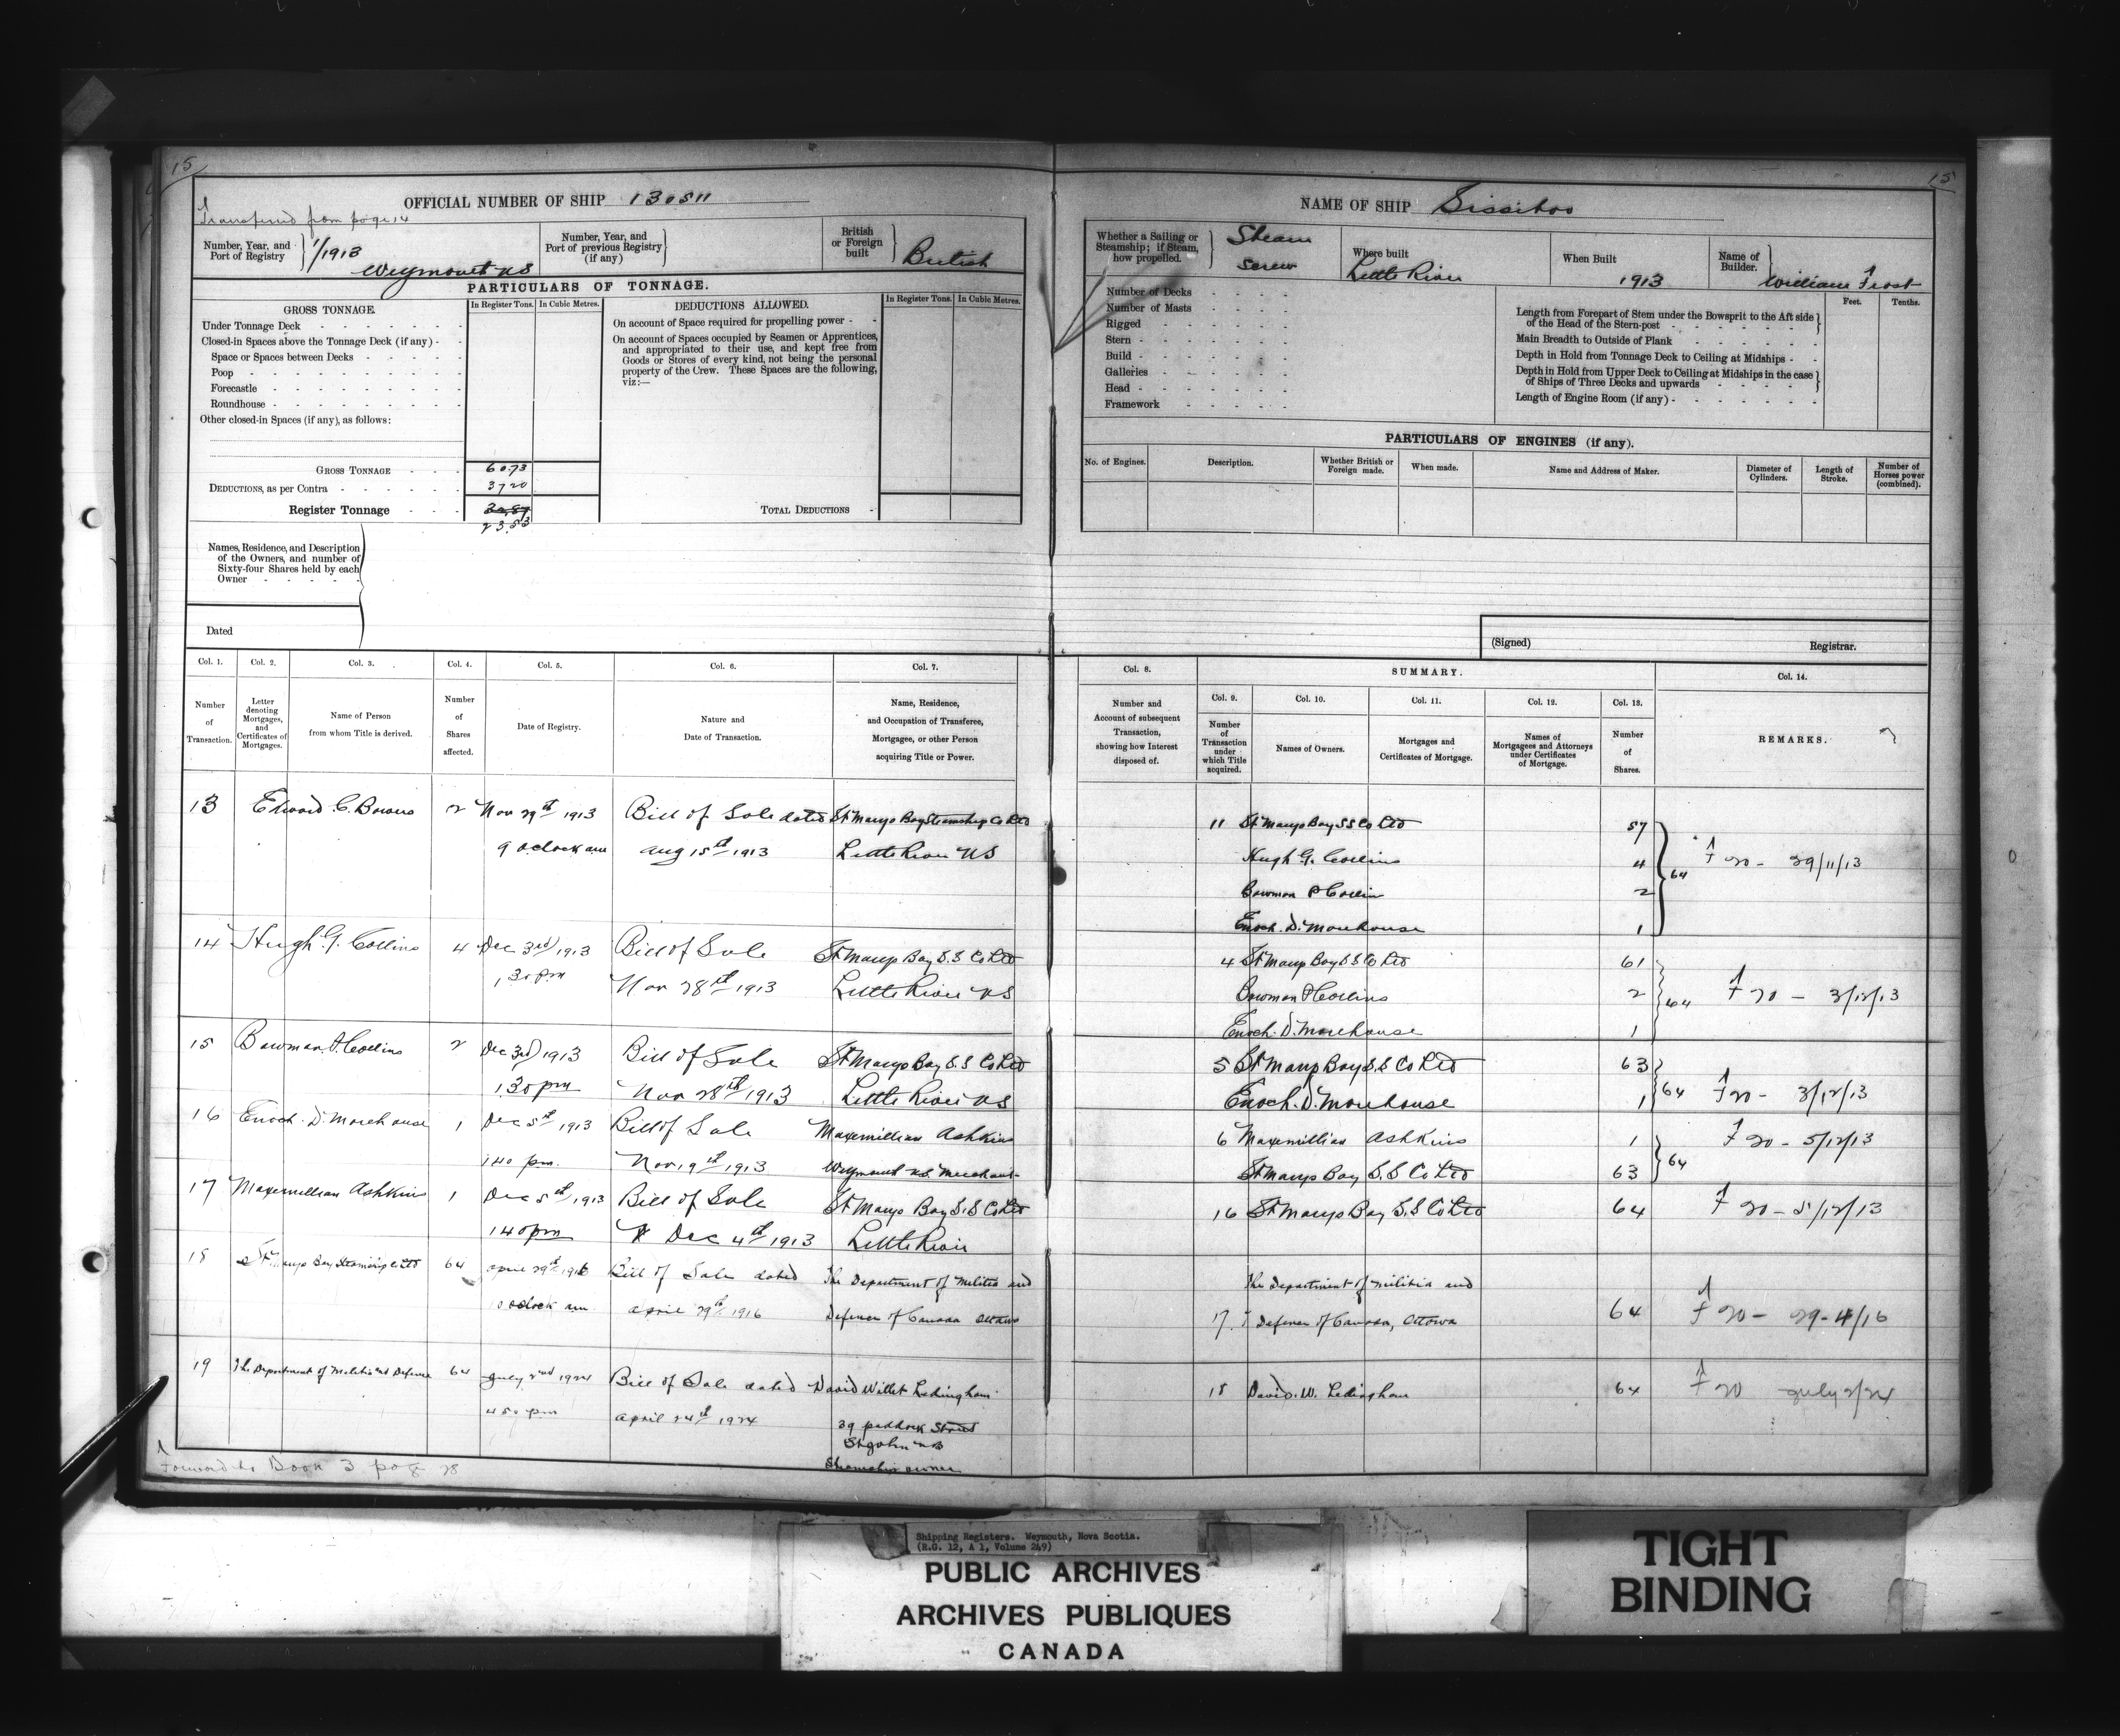 15
15
OFFICIAL NUMBER OF SHIP 130511
Transferred from page 14
Number, Year, and Port of Registry
1/1913
Weymouth NS
Number, Year, and Port of previous Registry (if any)
British or Foreign built
British
PARTICULARS OF TONNAGE.
GROSS TONNAGE.
In Register Tons.
In Cubic Metres.
DEDUCTIONS ALLOWED.
In Register Tons.
In Cubic Metres.
Under Tonnage Deck
Closed-in Spaces above the Tonnage Deck (if any)
Space or Spaces between Decks
Poop
Forecastle
Roundhouse
Other closed-in Spaces (if any), as follows:
On account of Space required for propelling power
On account of Spaces occupied by Seamen or Apprentices,
and appropriated to their use, and kept free from
Goods or Stores of every kind, not being the personal
property of the Crew. These Spaces are the following,
viz:—
GROSS TONNAGE 60.73
DEDUCTIONS, as per Contra 37 20
Register Tonnage
23.53
TOTAL DEDUCTIONS
Names, Residence, and Description
of the Owners, and number of
Sixty-four Shares held by each
Owner
Dated
NAME OF SHIP Sissiboo
Whether a Sailing or
Steamship; if Steam,
how propelled.
Steam
Screw
Where built
Little River
When Built
1913
Name of Builder.
William Frost
Number of Decks
Number of Masts
Rigged
Stern
Build
Galleries
Head
Framework
Feet.
Tenths.
Length from Forepart of Stem under the Bowsprit to the Aft side
of the Head of the Stern-post
Main Breadth to Outside of Plank
Depth in Hold from Tonnage Deck to Ceiling at Midships
Depth in Hold from Upper Deck to Ceiling at Midships in the case
of Ships of Three Decks and upwards
Length of Engine Room (if any)
PARTICULARS OF ENGINES (if any).
No. of Engines.
Description.
Whether British or Foreign made.
When made.
Name and Address of Maker.
Diameter of Cylinders.
Length of Stroke.
Number of Horses power (combined).
(Signed)
Registrar.
Col. 1.
Col. 2.
Col. 3.
Col. 4.
Col. 5.
Col. 6.
Col. 7.
Number of Transaction.
Letter denoting Mortgages, and Certificates of Mortgages.
Name of Person from whom Title is derived.
Number of Shares affected.
Date of Registry.
Nature and Date of Transaction.
Name, Residence, and Occupation of Transferee, Mortgagee, or other Person acquiring Title or Power.
Col. 8.
Number and Account of subsequent Transaction, showing how Interest disposed of.
SUMMARY.
Col. 9.
Col. 10.
Col. 11.
Col. 12.
Col. 13.
Number of Transaction under which Title acquired.
Names of Owners.
Mortgages and Certificates of Mortgage.
Names of Mortgagees and Attorneys under Certificates of Mortgage.
Number of Shares.
Col. 14.
REMARKS.
13 Edward C. Bowers 2 Nov 29th 1913 Bill of Sale dated St Marys Bay Steamship Co Ltd
9 oclock am Aug 15th 1913 Little River NS
14 Hugh G. Collins 4 Dec 3rd 1913 Bill of Sale St Marys Bay S.S Co Ltd
1.30 pm Nov 28th 1913 Little River NS
15 Bowman P. Collins 2 Dec 3rd 1913 Bill of Sale St Marys Bay S.S Co Ltd
1.30 pm Nov 28th 1913 Little River NS
16 Enoch D. Morehouse 1 Dec 5th 1913 Bill of Sale Maxemillian Ashkins
1 40 pm. Nov 19th 1913 Weymouth N.S. Merchant
17 Maxemillian Ashkins 1 Dec 5th 1913 Bill of Sale St Marys Bay S.S Co Ltd
1 40 pm Dec 4th 1913 Little River
18 St Marys Bay Steamship Co Ltd 64 april 29th 1916 Bill of Sale dated The Department of Militia and
10 oclock am april 29th 1916 Defence of Canada Ottawa
19 The Department of Militia and Defence 64 July 2nd 1924 Bill of Sale dated David Willet Ledingham
4 50 pm april 24th 1924 39 paddock Street
St John NB
Steamship owner
Forward to Book 3 page 28
11 St Marys Bay SS Co Ltd 57
Hugh G. Collins 4 64 20 - 29/11/13
Bowman P Collins 2
Enoch D. Morehouse 1
4 St Marys Bay S S Co Ltd 61
Bowman P Collins 2 64 20 - 3/12/13
Enoch D. Morehouse 1
5 St Marys Bay S.S Co Ltd 63
Enoch D. Morehouse 1 64 20 - 3/12/13
6 Maxemillian Ashkins 1 20 - 5/12/13
St Marys Bay S.S Co Ltd 63 64
16 St Marys Bay S.S Co Ltd 64 20 - 5/12/13
The Department of Militia and
17 Defence of Canada, Ottawa 64 20 - 29-4/16
18 David. W. Ledingham 64 20 July 2/24
Shipping Registers. Weymouth, Nova Scotia.
(R.G. 12, A 1, Volume 249)
PUBLIC ARCHIVES
ARCHIVES PUBLIQUES
CANADA
TIGHT
BINDING